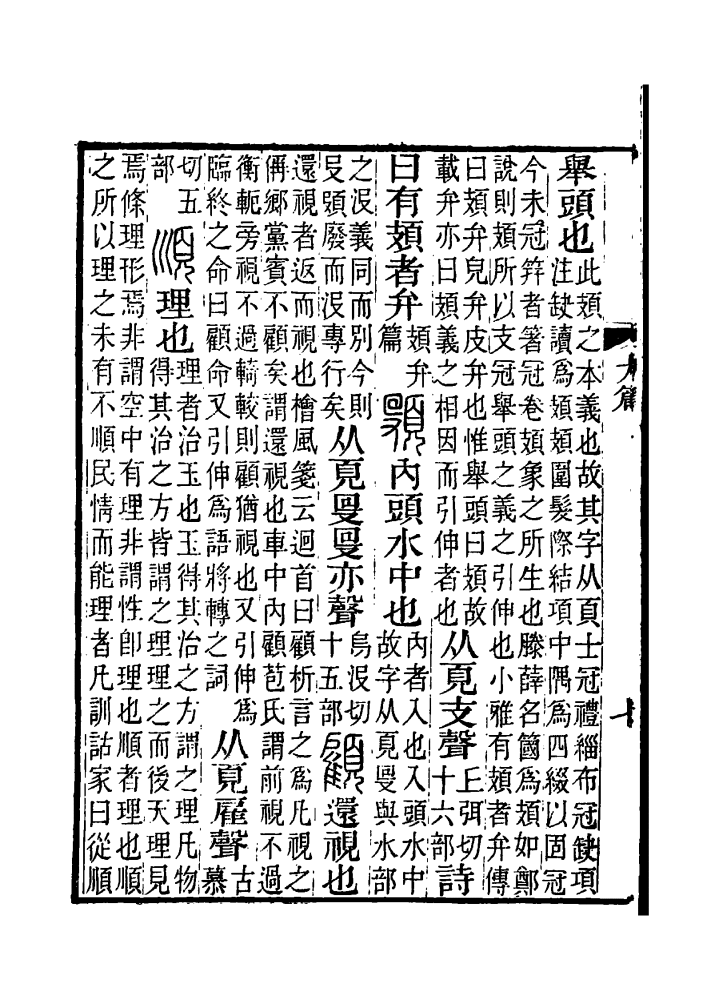 舉頭也此頍之本義也故其字从頁士冠禮緇布冠缺項注缺讀爲頍頍圍髮際結項中隅爲四綴以固冠
今未冠笄者箸冠卷頍象之所生也滕薛名簂爲頍如鄭說則頍所以支冠舉頭之義之引伸也小雅有頍者弁傳
曰頍弁皃弁皮弁也惟舉頭曰頍故載弁亦曰頍義之相因而引伸者也从頁支聲丄弭切十六部詩
曰有頍者弁頍弁篇內頭水中也內者入也入頭水中故字从頁𠬛與水部
之𠬛義同而別今則𠬛頭廢而𠬛專行矣从頁𠬛𠬛亦聲烏𠬛切十五部顧還視也
還視者返而視也檜風箋云迴首曰顧析言之爲凡視之偁鄉黨賓不顧矣謂還視也車中內顧苞氏謂前視不過
衡軛旁視不過輢較則顧猶視也又引伸爲臨終之命曰顧命又引伸爲語將轉之詞从頁雇聲古慕
切五部順理也理者治玉也玉得其治之方謂之理凡物得其治之方皆謂之理理之而後天理見
焉條理形焉非謂空中有理非謂性卽理也順者理也順之所以理之未有不順民情而能理者凡訓詁家曰從順